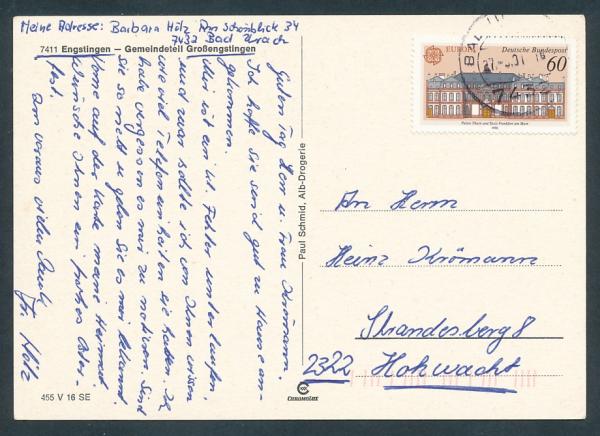 Meine Adresse: Barbara Hölz Am Schönblick 34
7432 Bad Urach
7411 Engstingen – Gemeindeteil Großengstingen
Guten Tag Herr u. Frau Krömann.
Ich hoffe Sie sind gut zu Hause an-
gekommen.
Mir ist ein kl. Fehler unterlaufen.
und zwar sollte ich von Ihnen wissen
wie viel Telefoneinheiten sie hatten. Ich
habe vergessen es mir zu notieren. Sind
Sie so nett u. geben Sie es mir bekannt
Vorne auf der Karte meine Heimat
Wünsche Ihnen ein frohes Oster-
fest.
Zum voraus vielen Dank
Fr. Hölz
455 V 16 SE
Paul Schmid, Alb-Drogerie
CHROMOLUX
EUROPA
Deutsche Bundespost
60
Palais Thurn und Taxis Frankfurt am Main
1990
7432
An Herrn
Heinz Krömann
Strandesberg 8
2322 Hohwacht